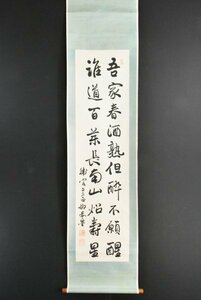 吾家春酒熟但醉不願醒
誰道百葉長南山炤壽星